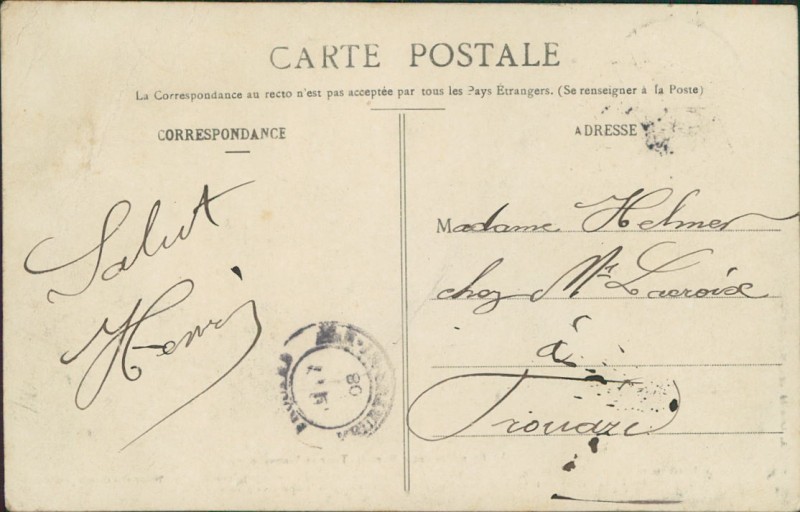 CARTE POSTALE
La Correspondance au recto n'est pas acceptée par tous les Pays Étrangers. (Se renseigner à la Poste)
CORRESPONDANCE
Salut
Henri
08
ADRESSE
Madame Helmer
chez Mr Lacroix
à